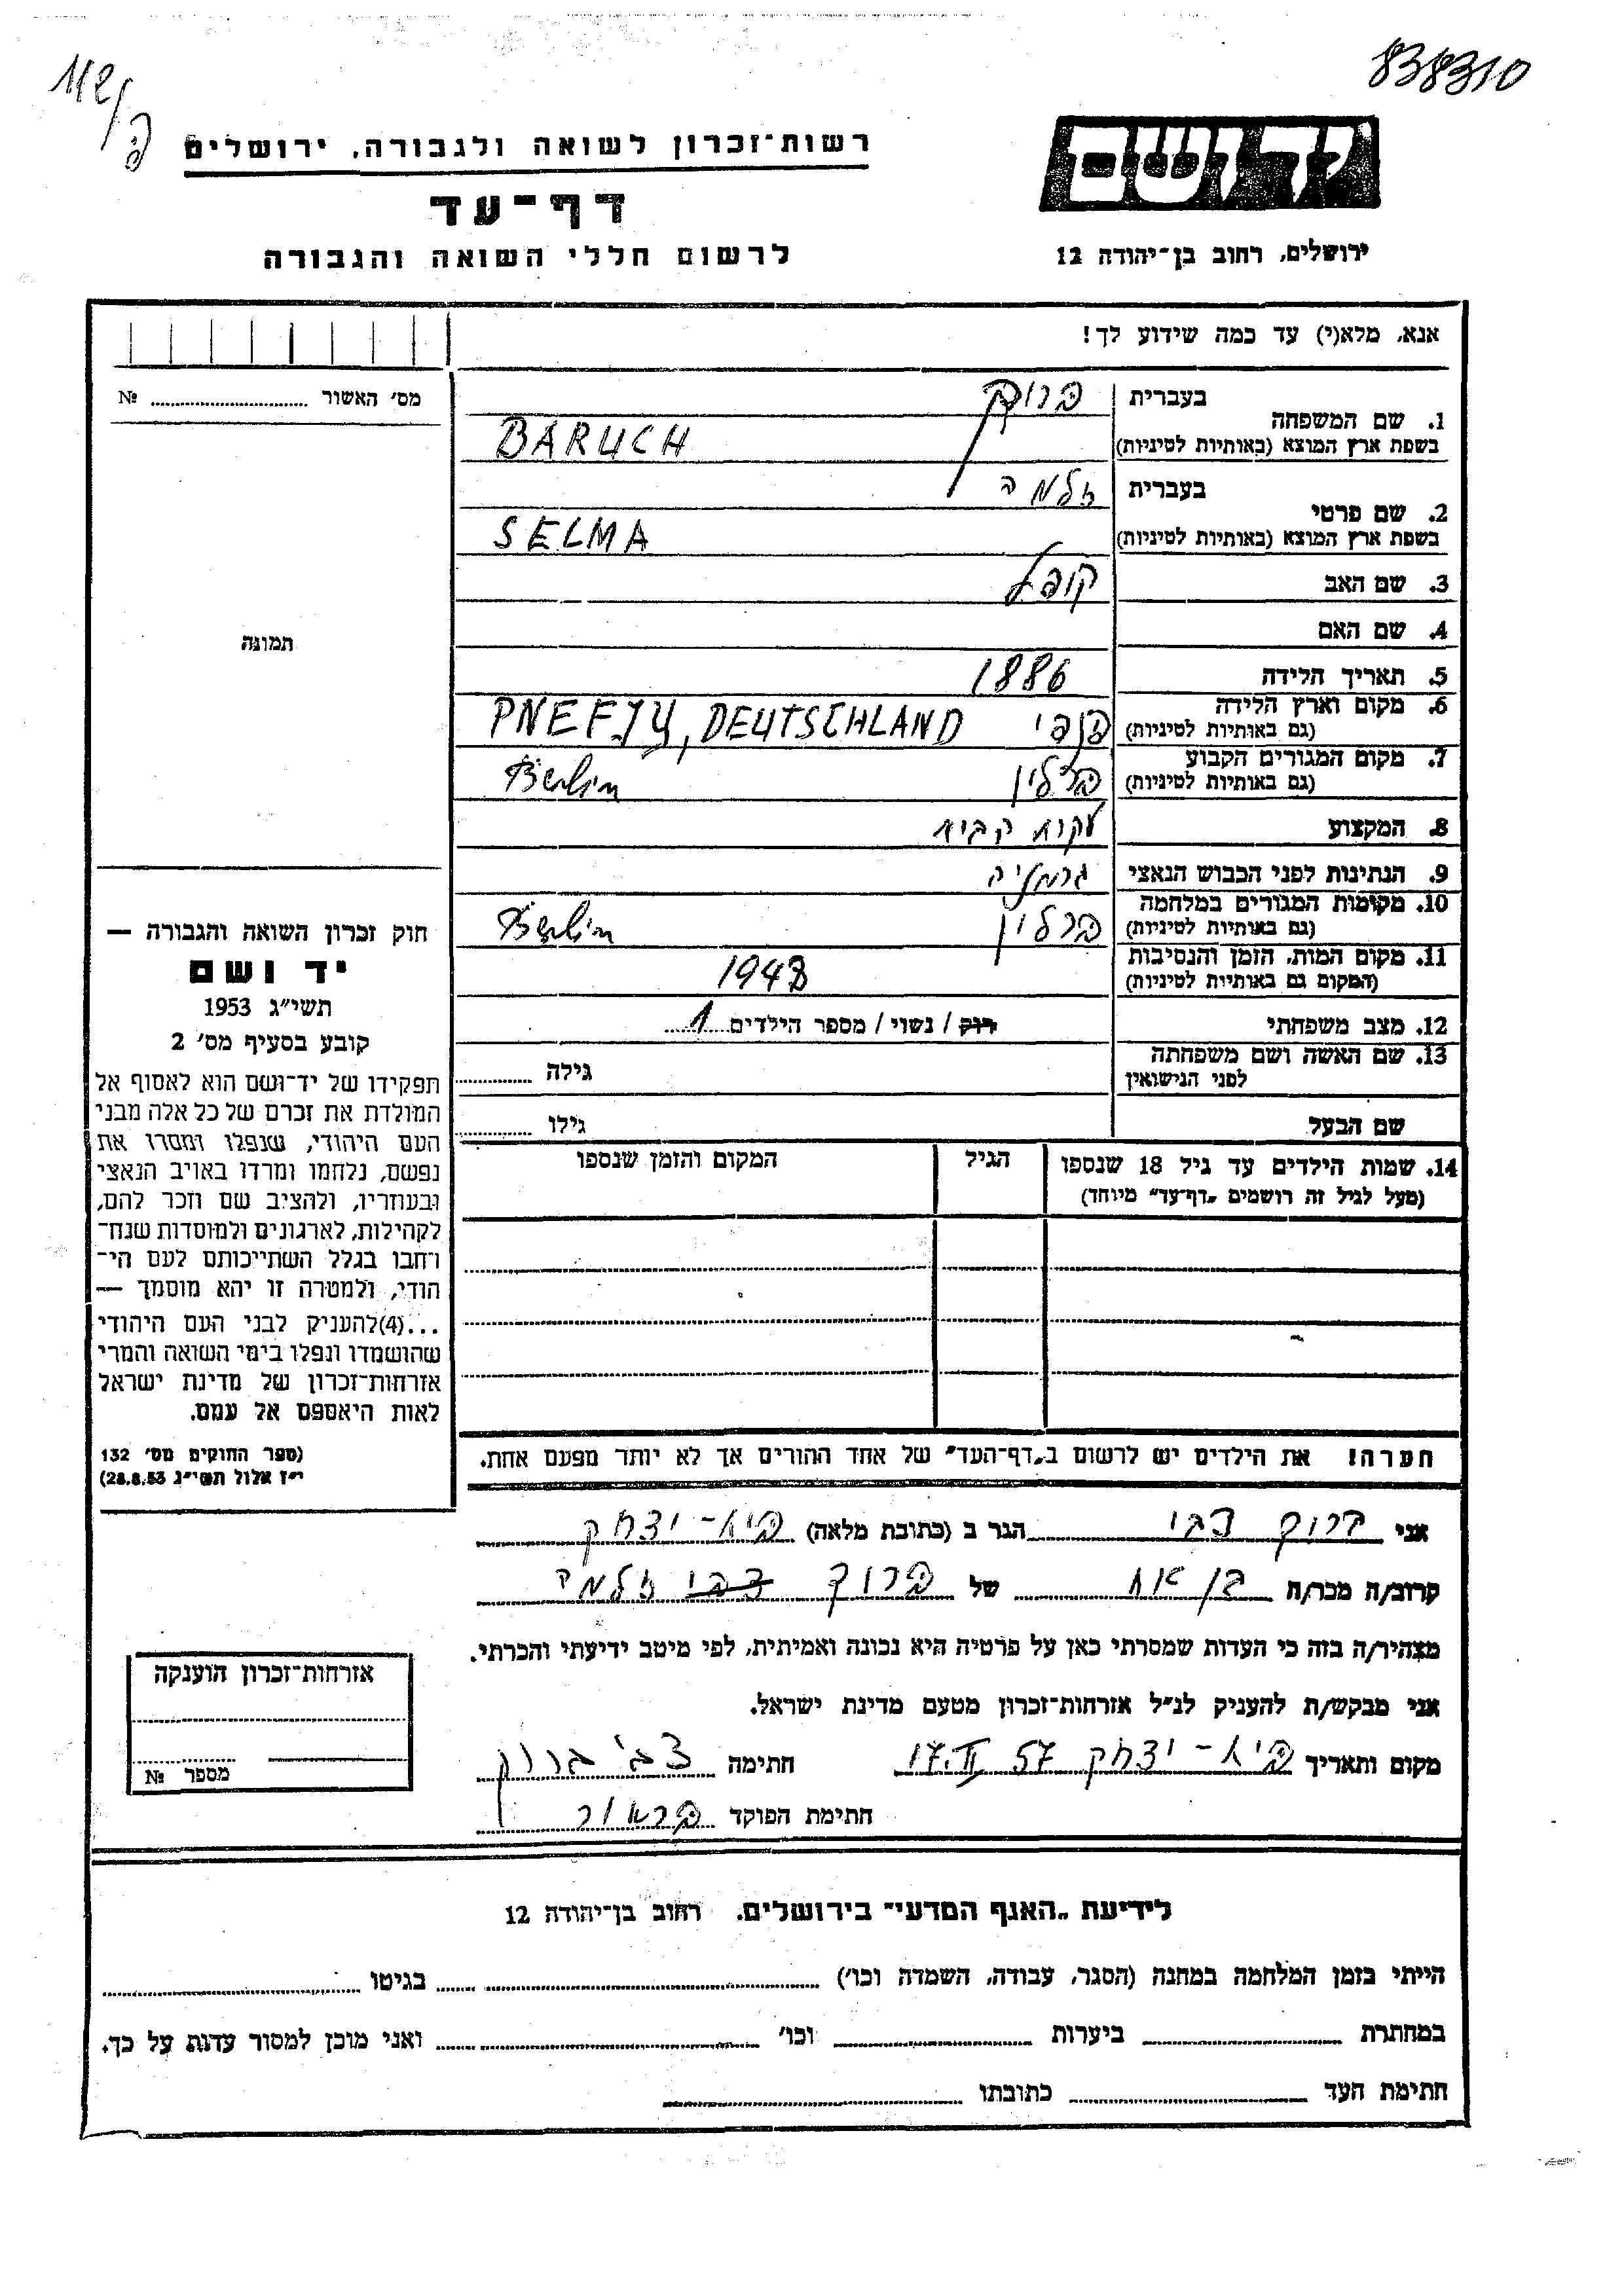 838310
112/פ
יד ושם
ירושלים, רחוב בן־יהודה 12
רשות־זכרון לשואה ולגבורה, ירושלים
דף־עד
לרשום חללי השואה והגבורה
אנא, מלא(י) עד כמה שידוע לך!
מס׳ האשור № ..........
בעברית ברוך
1. שם המשפחה
בשפת ארץ המוצא (באותיות לטיניות) BARUCH
בעברית זלמה
2. שם פרטי
בשפת ארץ המוצא (באותיות לטיניות) SELMA
3. שם האב קופל
4. שם האם
5. תאריך הלידה 1886
6. מקום וארץ הלידה PNEFJY, DEUTSCHLAND
(גם באותיות לטיניות)
7. מקום המגורים הקבוע ברלין Berlin
(גם באותיות לטיניות)
8. המקצוע עקרת הבית
9. הנתינות לפני הכבוש הנאצי גרמניה
10. מקומות המגורים במלחמה ברלין Berlin
(גם באותיות לטיניות)
11. מקום המות, הזמן והנסיבות 1943
(המקום גם באותיות לטיניות)
12. מצב משפחתי רוק / נשוי / מספר הילדים 1
13. שם האשה ושם משפחתה גילה
לפני הנישואין
שם הבעל גילו
14. שמות הילדים עד גיל 18 שנספו הגיל המקום והזמן שנספו
(מעל לגיל זה רושמים „דף־עד״ מיוחד)
הערה! את הילדים יש לרשום ב„דף־העד״ של אחד ההורים אך לא יותר מפעם אחת.
תמונה
חוק זכרון השואה והגבורה —
יד ושם
תשי״ג 1953
קובע בסעיף מס׳ 2
תפקידו של יד־ושם הוא לאסוף אל
המולדת את זכרם של כל אלה מבני
העם היהודי, שנפלו ומסרו את
נפשם, נלחמו ומרדו באויב הנאצי
ובעוזריו, ולהציב שם וזכר להם,
לקהילות, לארגונים ולמוסדות שנח־
רחבו בגלל השתייכותם לעם הי־
הודי, ולמטרה זו יהא מוסמך —
...(4)להעניק לבני העם היהודי
שהושמדו ונפלו בימי השואה והמרי
אזרחות־זכרון של מדינת ישראל
לאות היאספם אל עמם.
(ספר החוקים מס׳ 132
י״ז אלול תשי״ג 28.8.53)
אני ברוך צבי הגר ב (כתובת מלאה) בית-יצחק
קרוב/ה מכר/ה בן אח של ברוך צבי זלמה
מצהיר/ה בזה כי העדות שמסרתי כאן על פרטיה היא נכונה ואמיתית, לפי מיטב ידיעתי והכרתי.
אני מבקש/ת להעניק לנ״ל אזרחות־זכרון מטעם מדינת ישראל.
מקום ותאריך בית-יצחק 17.II 57 חתימה צבי ברוך
חתימת הפוקד
אזרחות־זכרון הוענקה
מספר №
לידיעת „האגף המדעי״ בירושלים, רחוב בן־יהודה 12
הייתי בזמן המלחמה במחנה (הסגר, עבודה, השמדה וכו׳) .......... בגיטו ..........
במחתרת .......... ביערות .......... וכו׳ .......... ואני מוכן למסור עדות על כך.
חתימת העד .......... כתובתו ..........